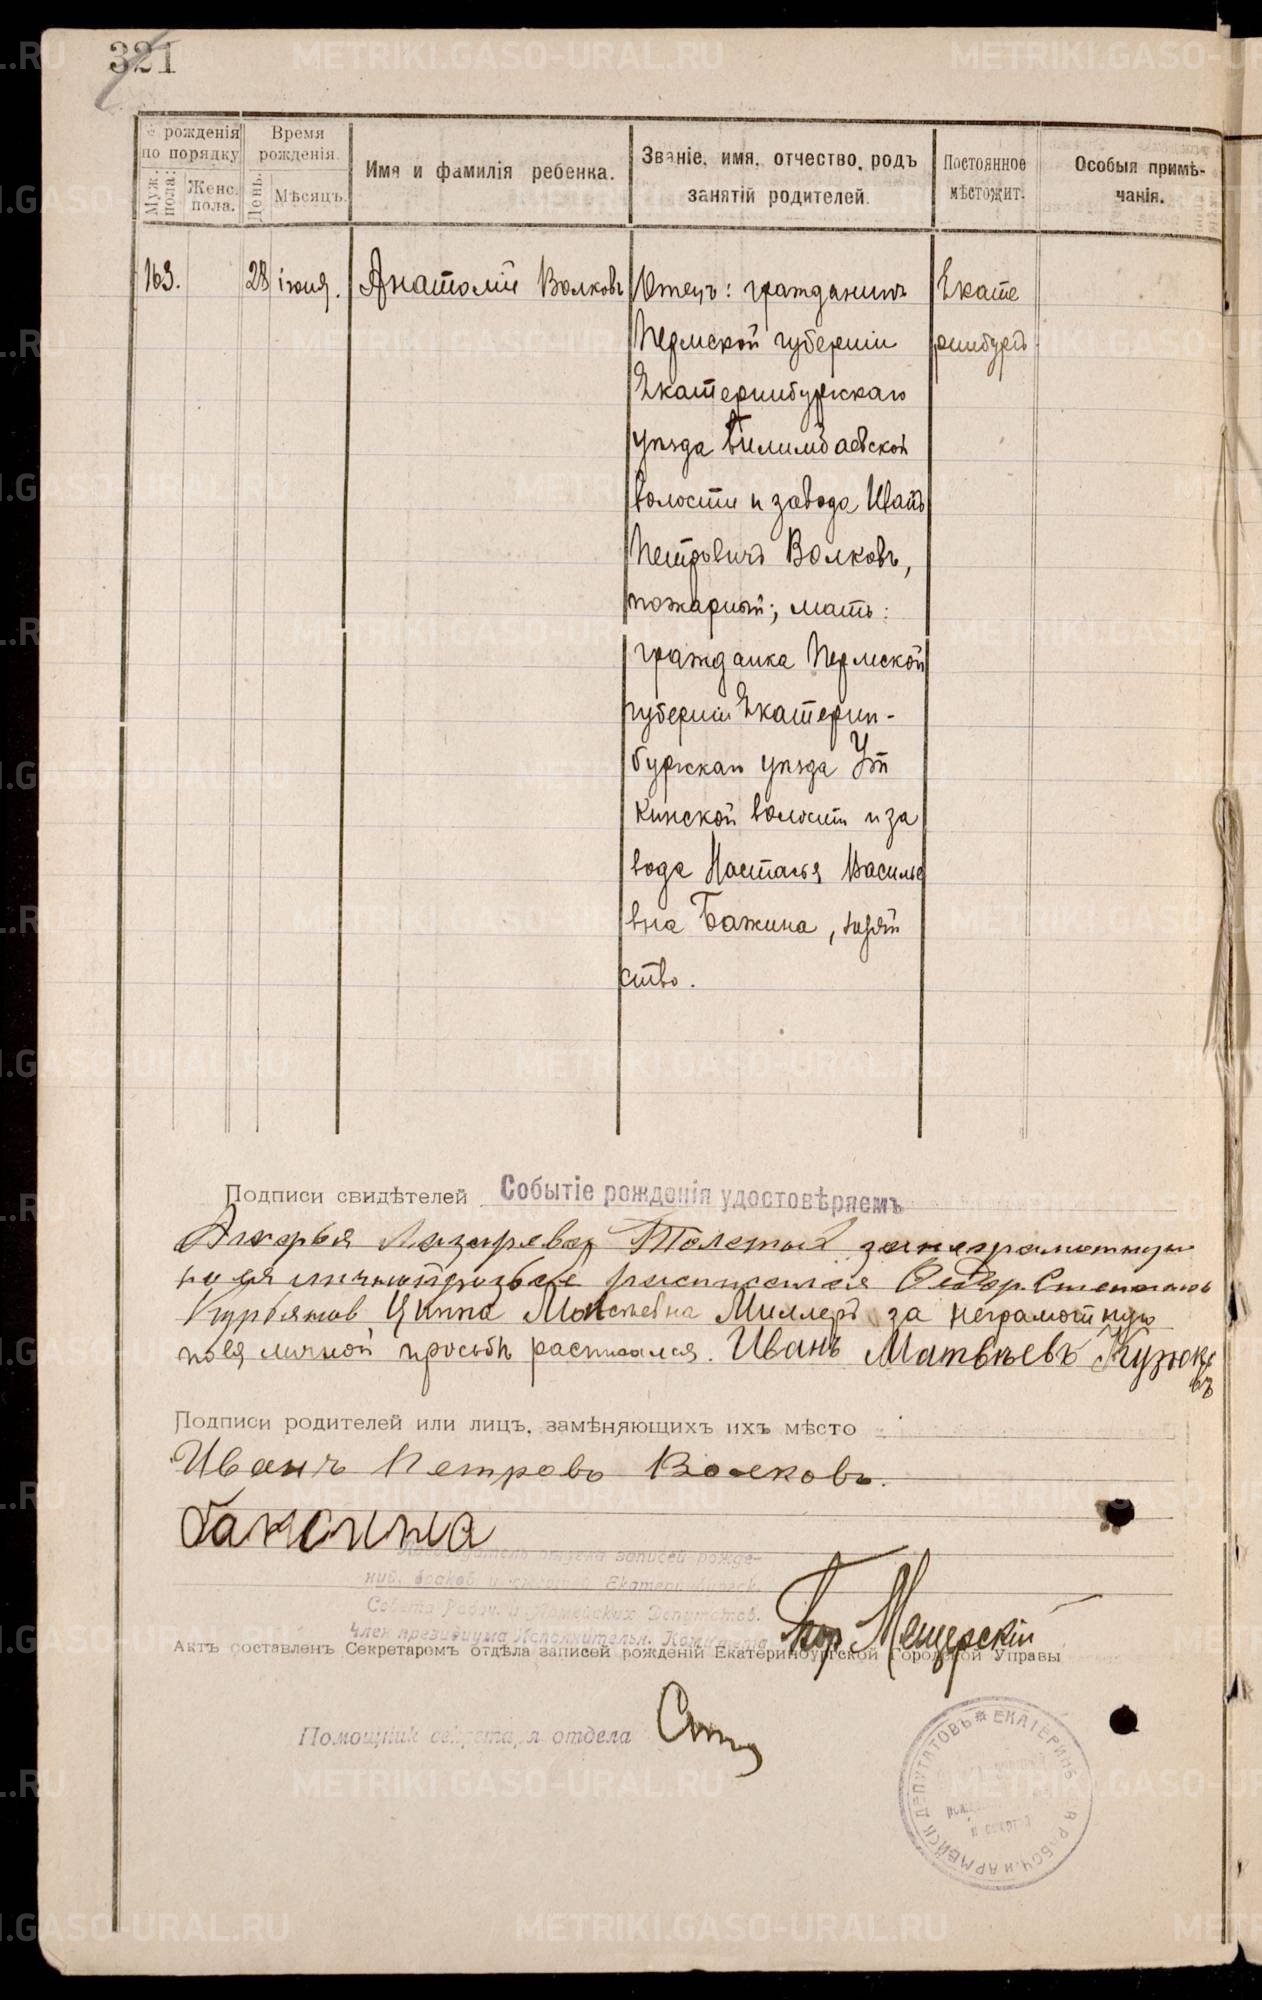 321
№ рожденія по порядку
Время рожденія.
Имя и фамилія ребенка.
Званіе, имя, отчество, родъ занятій родителей.
Постоянное мѣстожит.
Особыя примѣчанія.
Муж. пола.
Женс. пола.
День.
Мѣсяцъ.
163.
28
іюня.
Анатолій Волковъ
Отецъ: гражданинъ
Пермской губерніи
Екатеринбургскаго
уѣзда Билимбаевской
волости и завода Иванъ
Петровичъ Волковъ,
пожарный; мать:
гражданка Пермской
губерніи Екатерин-
бургскаго уѣзда Ут
кинской волости и за
вода Настасья Василье
вна Бажина,
ство.
Екате
ринбургъ
Подписи свидѣтелей
Событіе рожденія удостовѣряемъ
Лазарева Толстых за неграмотную
по ея личной прозьбе расписался Федор Степанов
Курбятов Цинна Моисеевна Миллеръ за неграмотную
по ея личной просьбѣ расписался. Иванъ Матвѣевъ
Подписи родителей или лицъ, замѣняющихъ ихъ мѣсто
Иванъ Петровъ Волковъ.
Бажина
отдела записей рожде-
ний, браков и смертей Екатеринбургск.
Совета Рабоч. и Армейских Депутатов.
Член президиума Исполнительн. Комитета
Мещерскій
Актъ составленъ Секретаремъ отдѣла записей рожденій Екатеринбургской Городской Управы
Помощник секретаря отдела
ЕКАТЕРИНБ РАБОЧ. и АРМЕЙСК ДЕПУТАТОВЪ
METRIKI.GASO-URAL.RU